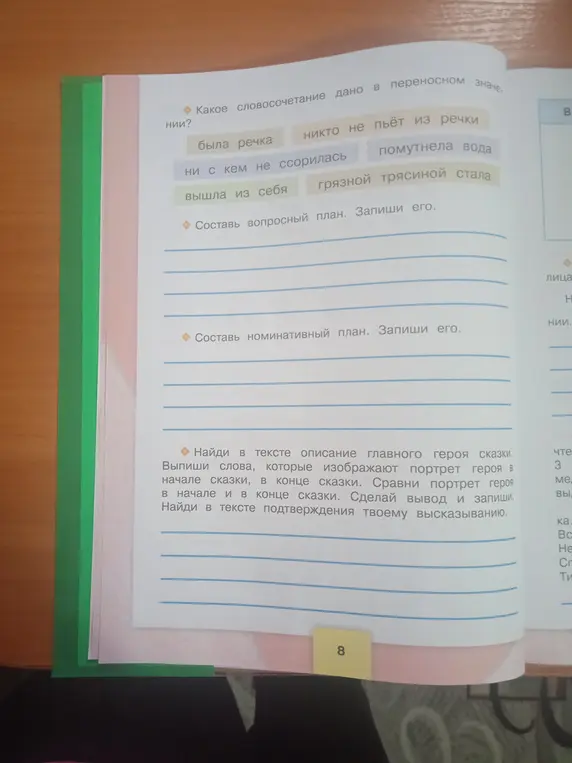 ◆ Какое словосочетание дано в переносном значе-
нии?
была речка никто не пьёт из речки
ни с кем не ссорилась помутнела вода
вышла из себя грязной трясиной стала
◆ Составь вопросный план. Запиши его.
◆ Составь номинативный план. Запиши его.
◆ Найди в тексте описание главного героя сказки.
Выпиши слова, которые изображают портрет героя в
начале сказки, в конце сказки. Сравни портрет героя
в начале и в конце сказки. Сделай вывод и запиши.
Найди в тексте подтверждения твоему высказыванию.
8
В
лица
Н
нии.
чте
З
ме
вы
ка.
Вс
Не
Сп
Ти